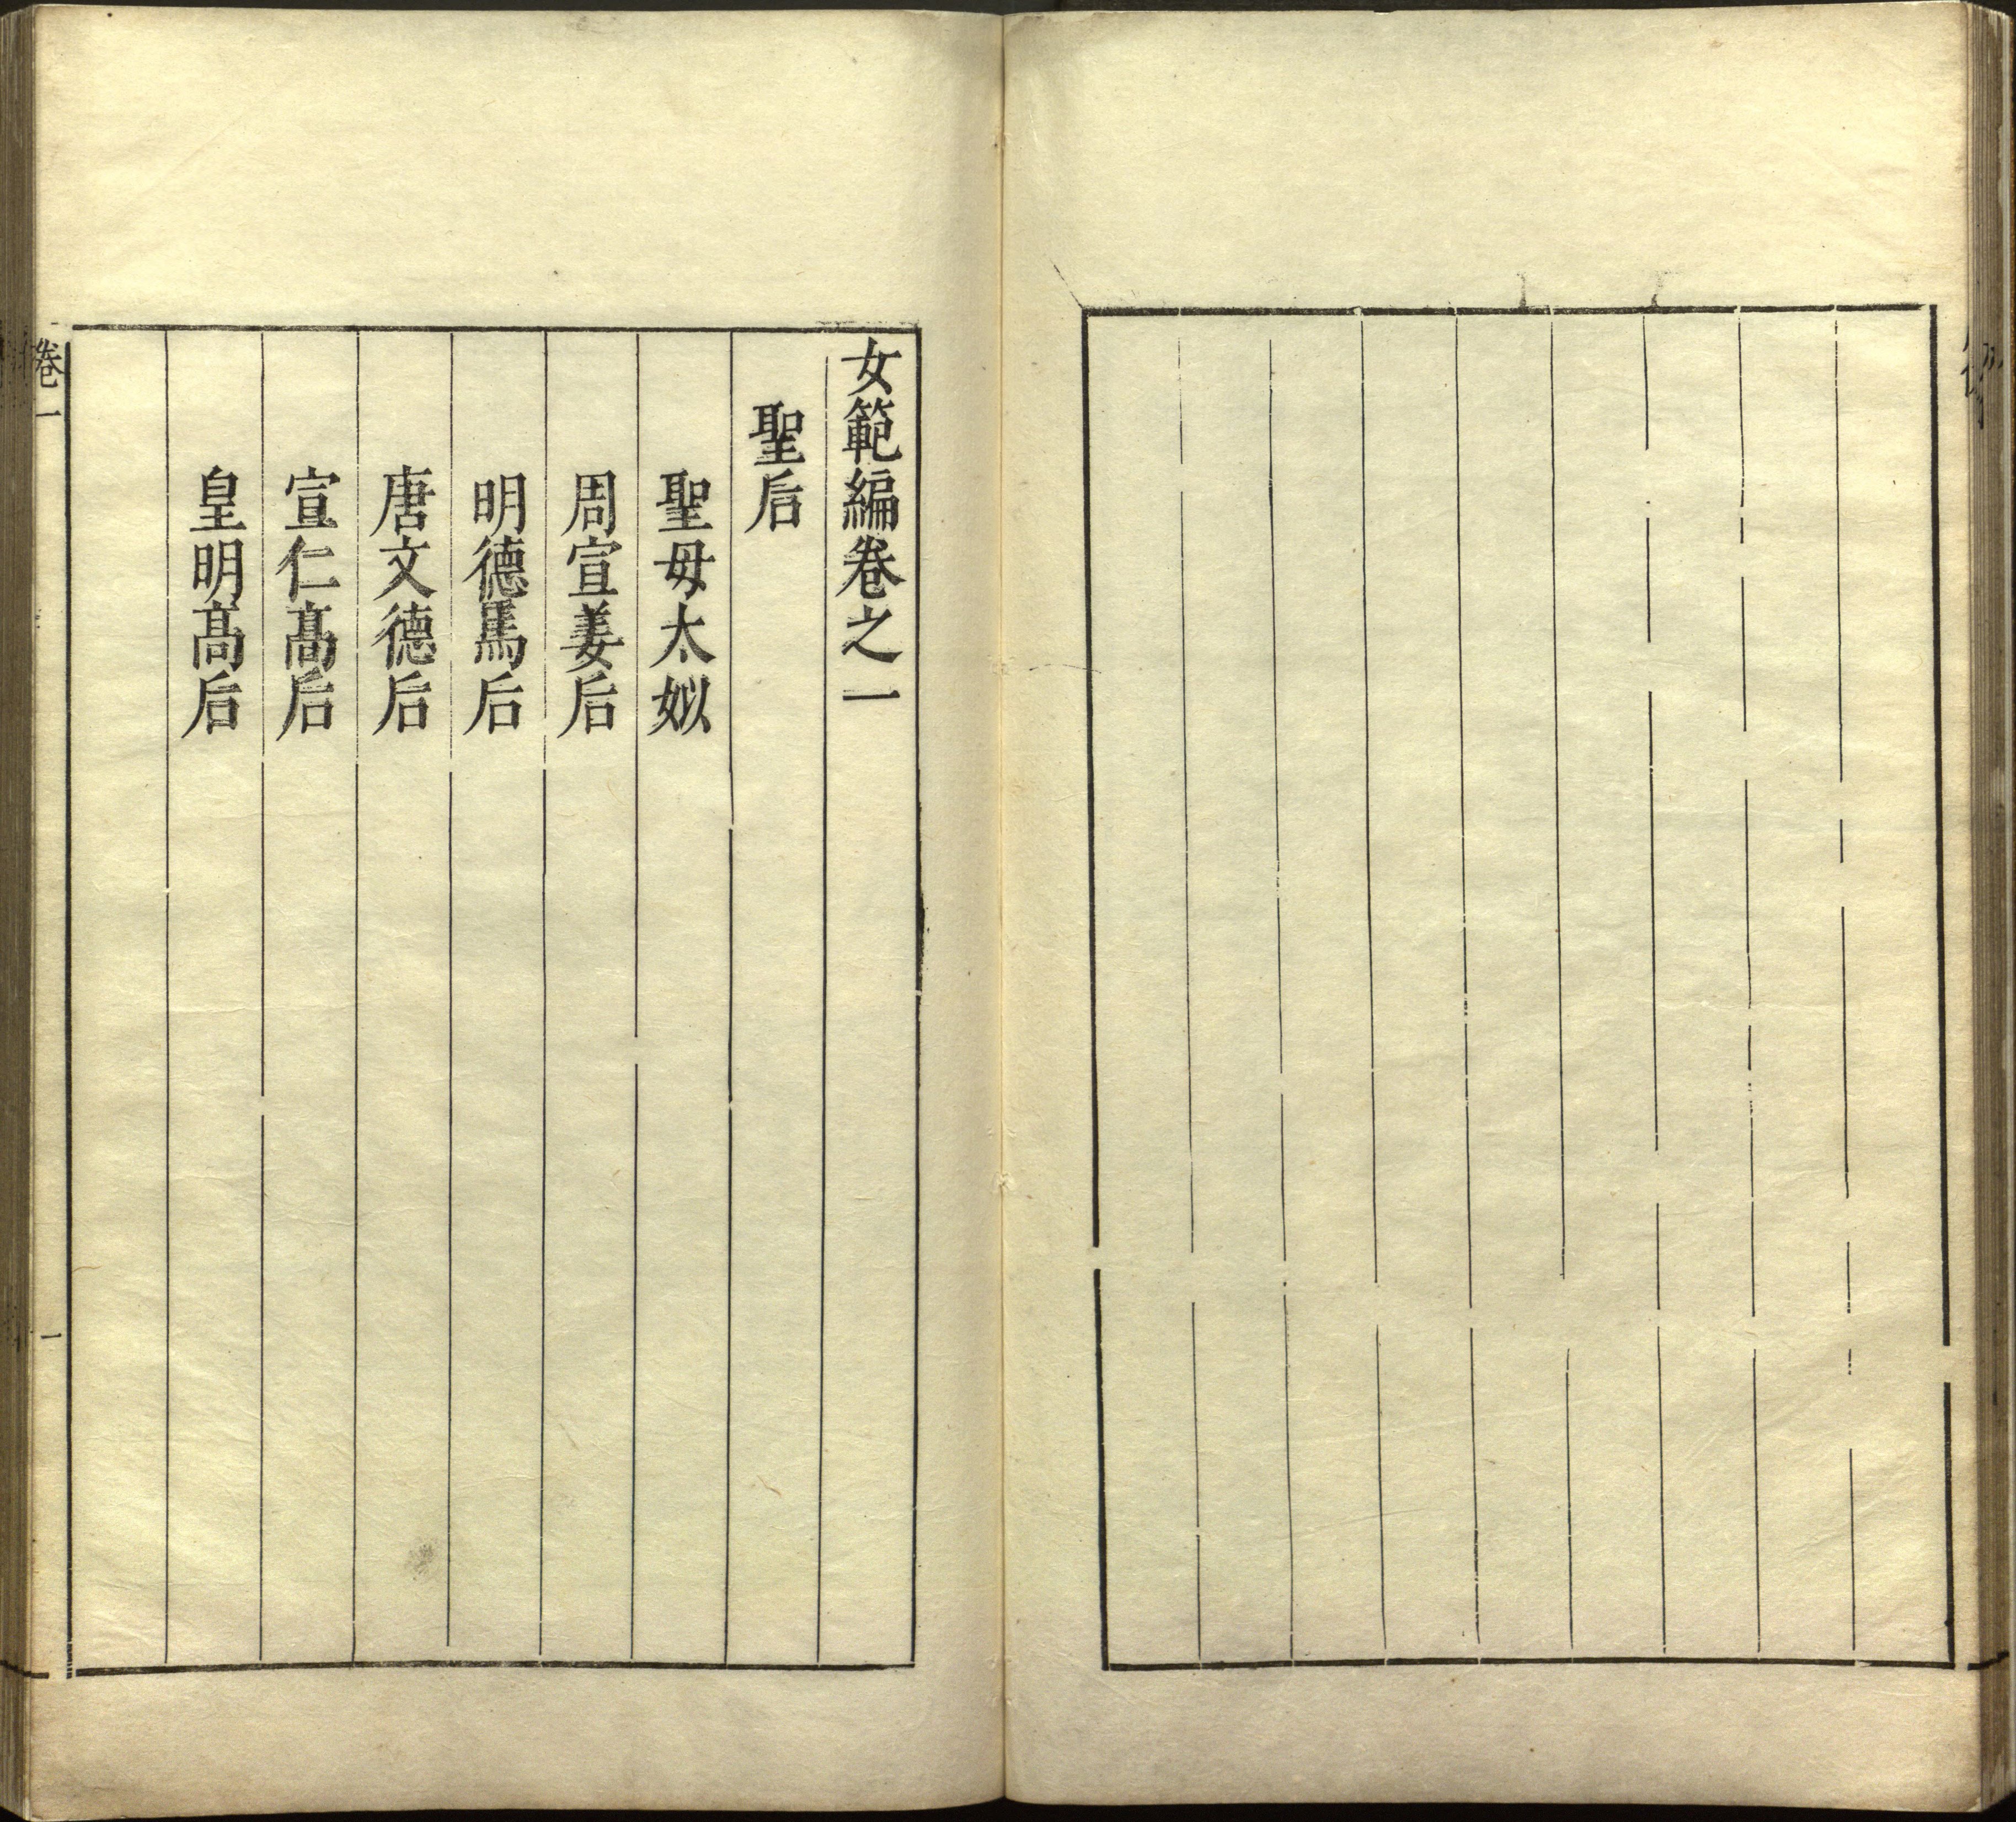 女範編卷之一
聖后
聖母太姒
周宣姜后
明德馬后
唐文德后
宣仁髙后
皇明髙后
卷一
一